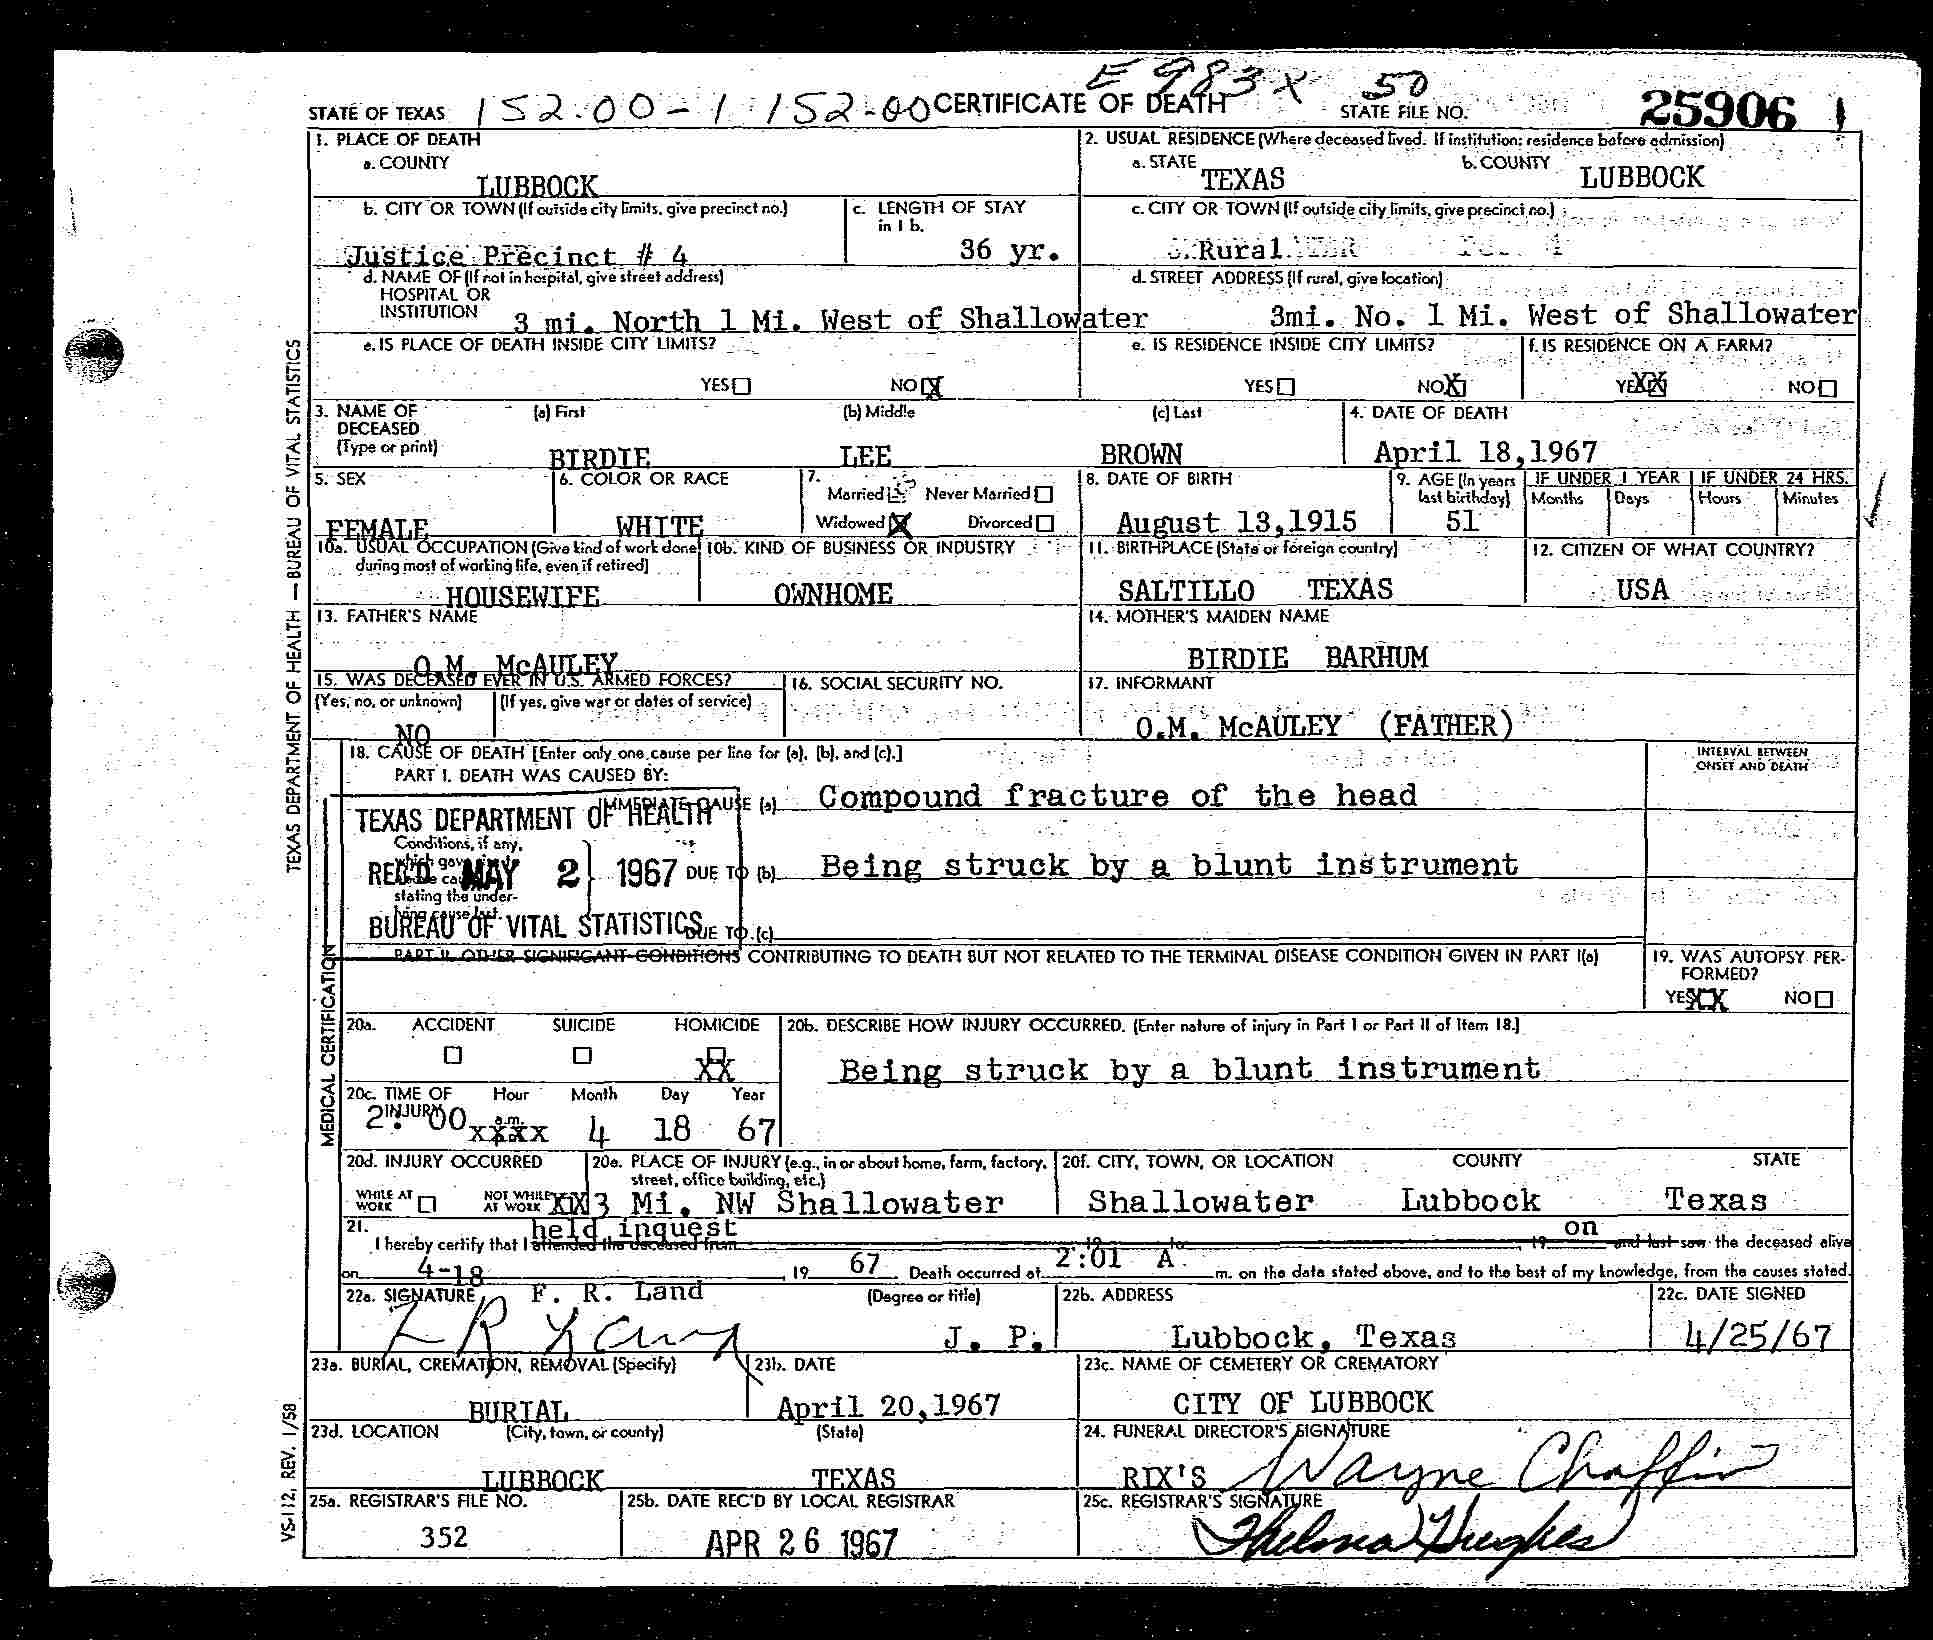 E 983X 50
STATE OF TEXAS 152.00-1 152-00 CERTIFICATE OF DEATH STATE FILE NO. 25906 1
1. PLACE OF DEATH
a. COUNTY
LUBBOCK
2. USUAL RESIDENCE (Where deceased lived. If institution: residence before admission)
a. STATE b. COUNTY
TEXAS LUBBOCK
b. CITY OR TOWN (If outside city limits, give precinct no.) c. LENGTH OF STAY in 1 b.
Justice Precinct # 4 36 yr.
c. CITY OR TOWN (If outside city limits, give precinct no.)
Rural
d. NAME OF (If not in hospital, give street address)
HOSPITAL OR
INSTITUTION 3 mi. North 1 Mi. West of Shallowater
d. STREET ADDRESS (If rural, give location)
3mi. No. 1 Mi. West of Shallowater
e. IS PLACE OF DEATH INSIDE CITY LIMITS?
YES NO X
e. IS RESIDENCE INSIDE CITY LIMITS? f. IS RESIDENCE ON A FARM?
YES NO X YES XX NO
3. NAME OF DECEASED (Type or print) (a) First (b) Middle (c) Last
BIRDIE LEE BROWN
4. DATE OF DEATH
April 18,1967
5. SEX
FEMALE
6. COLOR OR RACE
WHITE
7. Married Never Married
Widowed X Divorced
8. DATE OF BIRTH
August 13,1915
9. AGE (In years last birthday)
51
IF UNDER 1 YEAR IF UNDER 24 HRS.
Months Days Hours Minutes
10a. USUAL OCCUPATION (Give kind of work done during most of working life, even if retired)
HOUSEWIFE
10b. KIND OF BUSINESS OR INDUSTRY
OWNHOME
11. BIRTHPLACE (State or foreign country)
SALTILLO TEXAS
12. CITIZEN OF WHAT COUNTRY?
USA
13. FATHER'S NAME
O.M. McAULEY
14. MOTHER'S MAIDEN NAME
BIRDIE BARHUM
15. WAS DECEASED EVER IN U.S. ARMED FORCES?
(Yes, no, or unknown) (If yes, give war or dates of service)
NO
16. SOCIAL SECURITY NO.
17. INFORMANT
O.M. McAULEY (FATHER)
18. CAUSE OF DEATH [Enter only one cause per line for (a), (b), and (c).]
PART I. DEATH WAS CAUSED BY:
INTERVAL BETWEEN ONSET AND DEATH
IMMEDIATE CAUSE (a) Compound fracture of the head
TEXAS DEPARTMENT OF HEALTH
Conditions, if any,
REC'D MAY 2 1967 DUE TO (b) Being struck by a blunt instrument
stating the under-
lying cause last.
BUREAU OF VITAL STATISTICS DUE TO (c)
PART II. OTHER SIGNIFICANT CONDITIONS CONTRIBUTING TO DEATH BUT NOT RELATED TO THE TERMINAL DISEASE CONDITION GIVEN IN PART I(a)
19. WAS AUTOPSY PERFORMED?
YES XX NO
20a. ACCIDENT SUICIDE HOMICIDE
XX
20b. DESCRIBE HOW INJURY OCCURRED. (Enter nature of injury in Part I or Part II of Item 18.)
Being struck by a blunt instrument
20c. TIME OF INJURY Hour Month Day Year
2:00 a.m. xxxx 4 18 67
20d. INJURY OCCURRED
WHILE AT WORK NOT WHILE AT WORK XX
20e. PLACE OF INJURY (e.g., in or about home, farm, factory, street, office building, etc.)
3 Mi. NW Shallowater
20f. CITY, TOWN, OR LOCATION COUNTY STATE
Shallowater Lubbock Texas
21. held inquest on
I hereby certify that I attended the deceased from 19 to 19 and last saw the deceased alive
on 4-18 19 67 Death occurred at 2:01 A m. on the date stated above, and to the best of my knowledge, from the causes stated.
22a. SIGNATURE F. R. Land (Degree or title)
F R Land J. P.
22b. ADDRESS
Lubbock, Texas
22c. DATE SIGNED
4/25/67
23a. BURIAL, CREMATION, REMOVAL (Specify)
BURIAL
23b. DATE
April 20,1967
23c. NAME OF CEMETERY OR CREMATORY
CITY OF LUBBOCK
23d. LOCATION (City, town, or county) (State)
LUBBOCK TEXAS
24. FUNERAL DIRECTOR'S SIGNATURE
RIX'S Wayne Chaffin
25a. REGISTRAR'S FILE NO.
352
25b. DATE REC'D BY LOCAL REGISTRAR
APR 26 1967
25c. REGISTRAR'S SIGNATURE
Thelma Hughes
TEXAS DEPARTMENT OF HEALTH — BUREAU OF VITAL STATISTICS
MEDICAL CERTIFICATION
VS-112, REV. 1/58